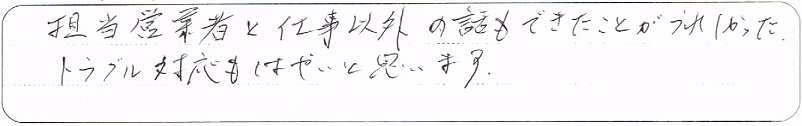 担当営業者と仕事以外の話もできたことがうれしかった.
トラブル対応もはやいと思います.